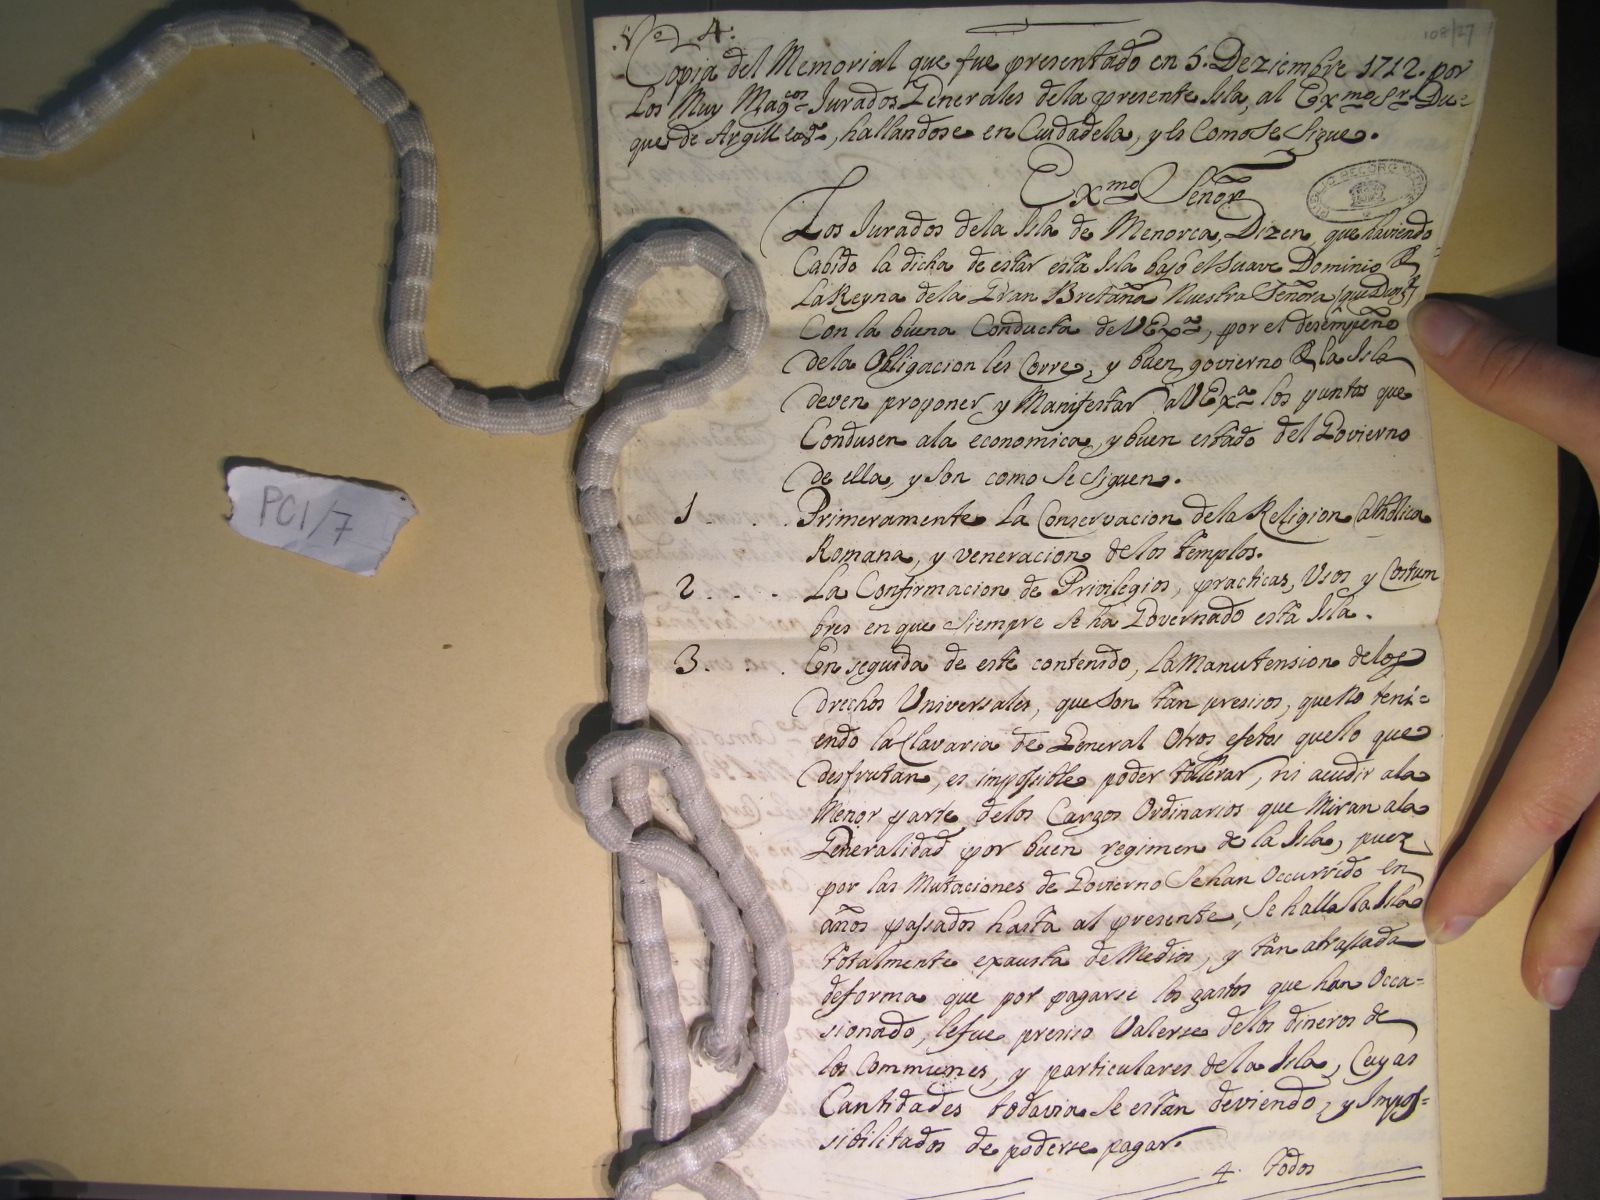 N.º 4.
108/27
Copia del Memorial que fue presentado en 5. Deziembre 1712. por
Los Muy Mag.cos Jurados Generales dela presente Isla, al Ex.mo S.r Du=
que de Argill, hallandose en Ciudadela, y es Como se sigue.
Ex.mo Señor
Los Jurados dela Isla de Menorca, Dizen, que haviendo
Cabido la dicha de estar esta Isla bajo el suave Dominio de
La Reyna dela Gran Bretaña Nuestra Señora
Con la buena Conducta de V Ex.a, por el desempeño
dela Obligacion les Corre, y buen govierno de la Isla
deven proponer y Manifestar a V Ex.a los puntos que
Condusen ala economica, y buen estado del Govierno
de ella, y son como se siguen.
1 . . . Primeramente La Conservacion dela Religion Catholica
Romana, y veneracion delos templos.
2 . . . . La Confirmacion de Privilegios, practicas, Usos y Costum
bres en que siempre se ha Governado esta Isla.
3 . . . En seguida de este contenido, La Manutension delos
drechos Universales, que son tan presisos, que No teni=
endo la Clavaria de General Otros efetos quelo que
desfrutan, es impossible poder tollerar, ni acudir ala
Menor parte delos Cargos Ordinarios que Miran ala
Generalidad por buen regimen de la Isla, puez
por las Mutaciones de Govierno Se han Occurrido en
años passados hasta al presente, Se halla la Isla
totalmente exausta de Medios, y tan atrassada
deforma que por pagarse los gastos que han Occa=
sionado, lefue presiso Valerse delos dineros de
los Communes, y particulares de la Isla, Cuyas
Cantidades todavia se estan deviendo, y Impos=
sibilitados de poderse pagar.
4. Todos
PC1/7